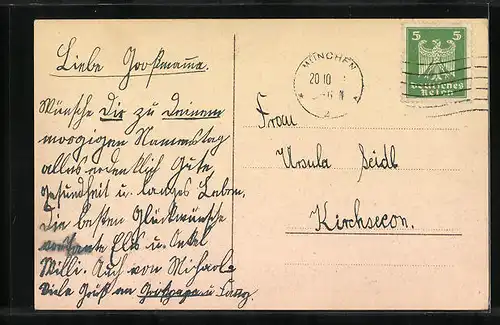 Liebe Großmama.
Wünsche Dir zu Deinem
morgigen Namenstag
alles erdenklich Gute
Gesundheit u. langes Leben.
Die besten Glückwünsche
von Tante Elis u. Onkel
Willi. Auch von Michael
Viele Grüß an Großpapa u.
MÜNCHEN
20 10
5 5
Deutsches
Reich
Frau
Ursula Seidl
Kirchseeon.